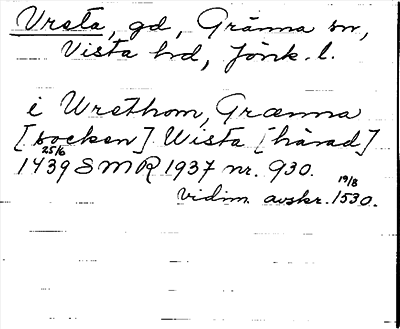 Vreta, gd, Gränna sn,
Vista hd, Jönk. l.
i Wrethom, Grænna
[socken] Wista [härad]
25/6 1439 SMR 1937 nr. 930.
vidim. avskr. 19/8 1530.